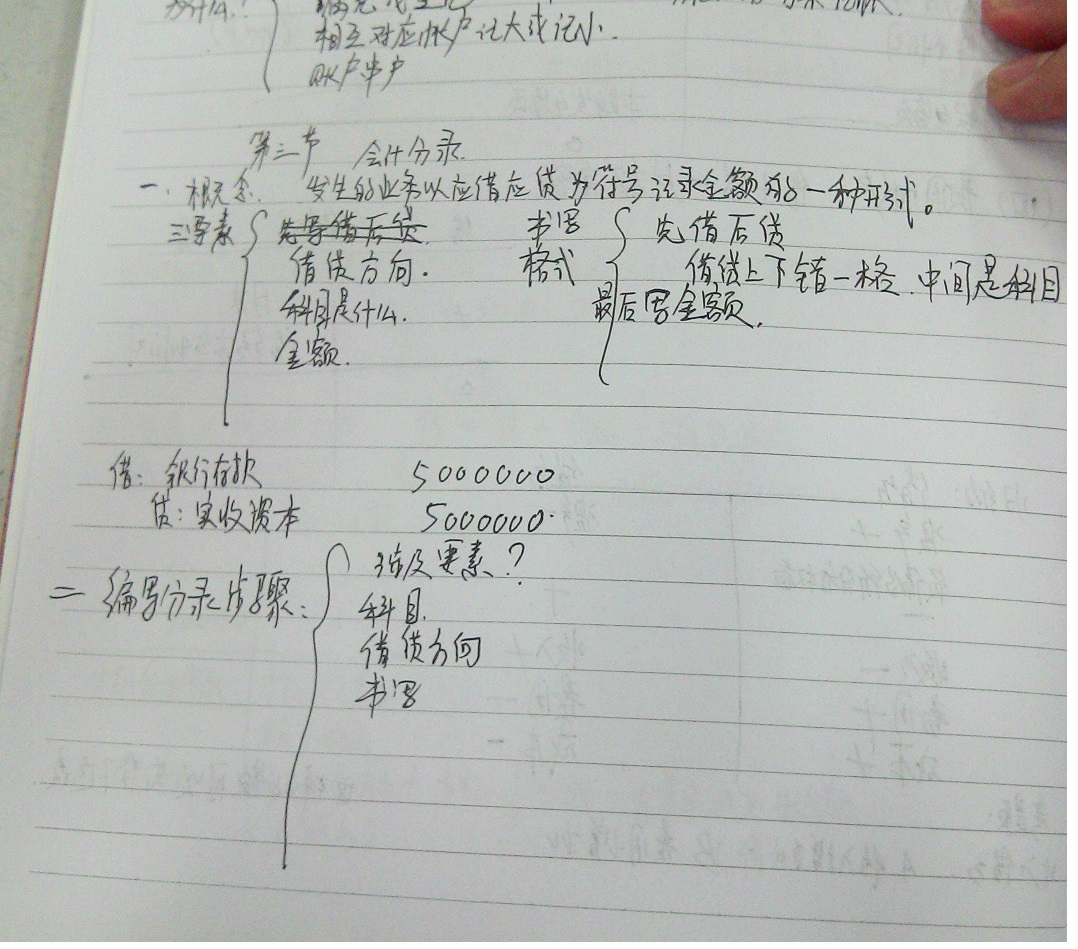 为什么？
相互对应帐户记大或记小.
账户串户
第三节 会计分录.
一. 概念. 发生的业务以应借应贷为符号记录金额的一种形式。
三要素 先写借后贷. 书写 先借后贷
借贷方向. 格式 借贷上下错一格.中间是科目
科目是什么. 最后写金额.
金额.
借: 银行存款 5000000
贷: 实收资本 5000000.
二 编写分录步骤: 涉及要素?
科目.
借贷方向
书写